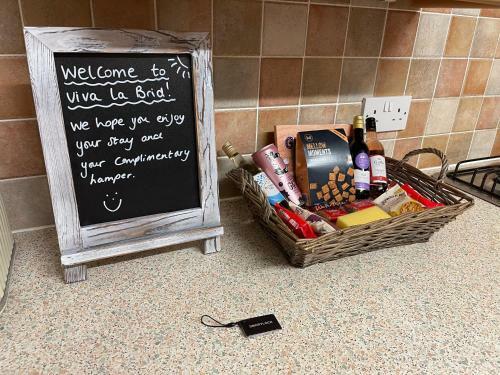 Welcome to
Viva la Brid!
We hope you enjoy
your stay and
your complimentary
hamper.
MELLOW
MOMENTS